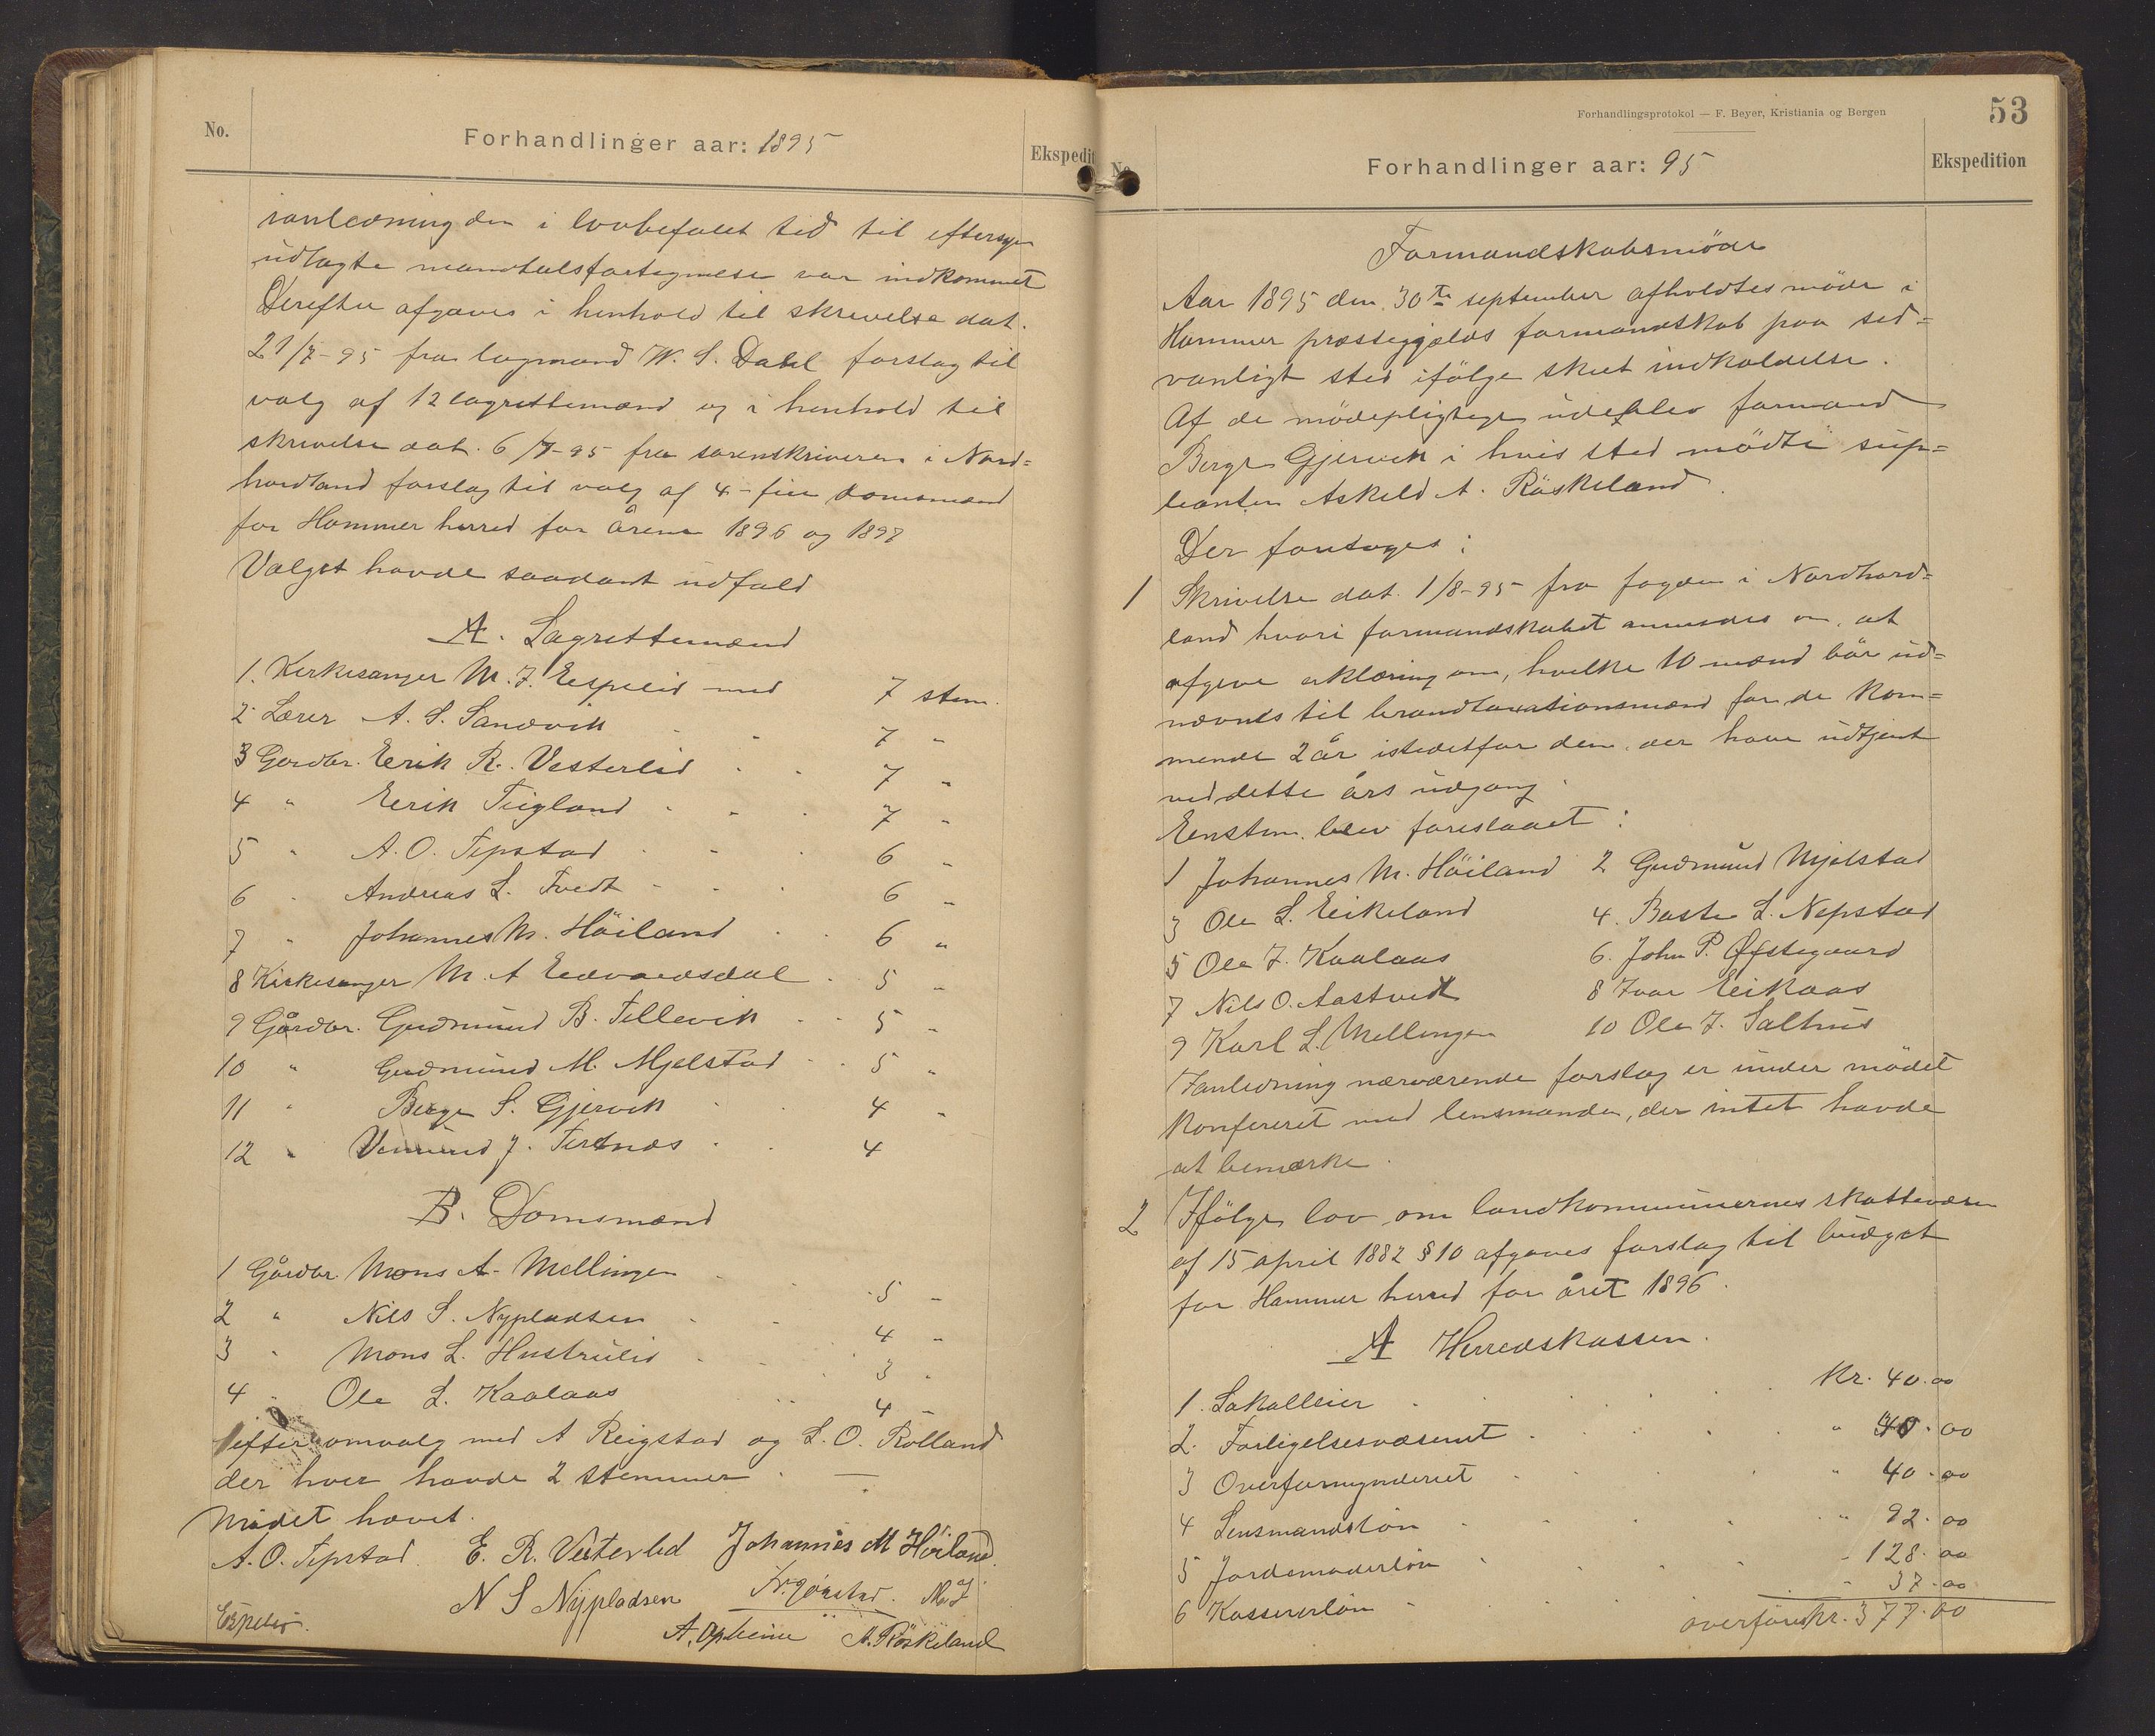 No.
Forhandlinger aar: 1895
Ekspedit
ianledning den i lovbefalet tid til eftersyn
udlagte mandtalsfortegnelse var indkommet
Derefter afgaves i henhold til skrivelse dat.
21/7-95 fra lagmand W. S. Dahl forslag til
valg af 12 lagrettemænd og i henhold til
skrivelse dat. 6/7-95 fra sorenskriveren i Nord=
hordland forslag til valg af 4-fire domsmænd
for Hammer herred for årene 1896 og 1897
Valget havde saadant udfald
A. Lagrettemænd
1. Kirkesanger M. J. Eespelid med 7 stem.
2 Lærer A. S. Sandvik - - 7 "
3 Gårdbr. Eerik R. Vesterlid - - 7 "
4 " Eerik Tugland - - - 7 "
5 " A. O. Tepstad - - - 6 "
6 " Andreas L. Tvedt - - - 6 "
7 " Johannes M. Höiland - - 6 "
8 Kirkesanger M. A Eedvardsdal - 5 "
9 Gårdbr. Gudmund B. Tellevik - - 5 "
10 " Gudmund M. Mjelstad - - 5 "
11 " Berge S. Gjervik - - 4 "
12 " Vemund J. Tertnæs - - 4
B. Domsmænd
1 Gårdbr. Mons A. Mellingen - - 5 "
2 " Nils S. Nypladsen - - 4 "
3 " Mons L. Hustrulid - - 3 "
4 " Ole L. Kaalaas - - 4 "
efter omvalg med A Reigstad og L. O. Rolland
der hver havde 2 stemmer. —
Mödet hævet.
A. O. Tepstad. E. R. Vesterlid Johannes M Höiland.
N S Nypladsen
A. Röskeland
Expedio.
Forhandlingsprotokol — F. Beyer, Kristiania og Bergen
53
No.
Forhandlinger aar: 95
Ekspedition
Formandskabsmöde
Aar 1895 den 30te september afholdtes möde i
Hammer præstegjælds formandskab paa sed=
vanligt sted ifölge skeet indkaldelse.
Af de mödepligtige udeblev formand
Berge Gjervik i hvis sted mödte sup=
leanten Askeld A. Röskeland.
Der foretoges:
1 Skrivelse dat. 1/8-95 fra fogden i Nordhord=
land hvori formandskabet anmodes om, at
afgive erklæring om, hvilke 10 mænd bör ud=
nævnes til brandtaxationsmænd for de kom=
mende 2 år istedetfor dem, der have udtjent
ved dette års udgang.
Eenstem. blev foreslaaet:
1 Johannes M. Höiland 2 Gudmund Mjelstad
3 Ole L. Eikeland 4. Baste L. Nepstad
5 Ole J. Kaalaas 6. John P. Øfstegaard
7 Nils O. Aastvedt 8 Ivar Eikaas
9 Karl L. Mellingen 10 Ole J. Salhus
I anledning nærværende forslag er under mödet
konfereret med lensmanden, der intet havde
at bemærke.
2 Ifölge lov om landkommunernes skattevæsen
af 15 april 1882 § 10 afgaves forslag til budget
for Hammer herred for året 1896.
A Herredskassen.
1. Lokalleier . . . . Kr. 40.00
2. Forligelsesvæsenet . . . . " 40.00
3 Overformynderiet . . . . " 40.00
4 Lensmandslön . . . . " 92.00
5 Jordemoderlön . . . . " 128.00
6 Kassererlön . . . . " 37.00
overföres kr. 377.00